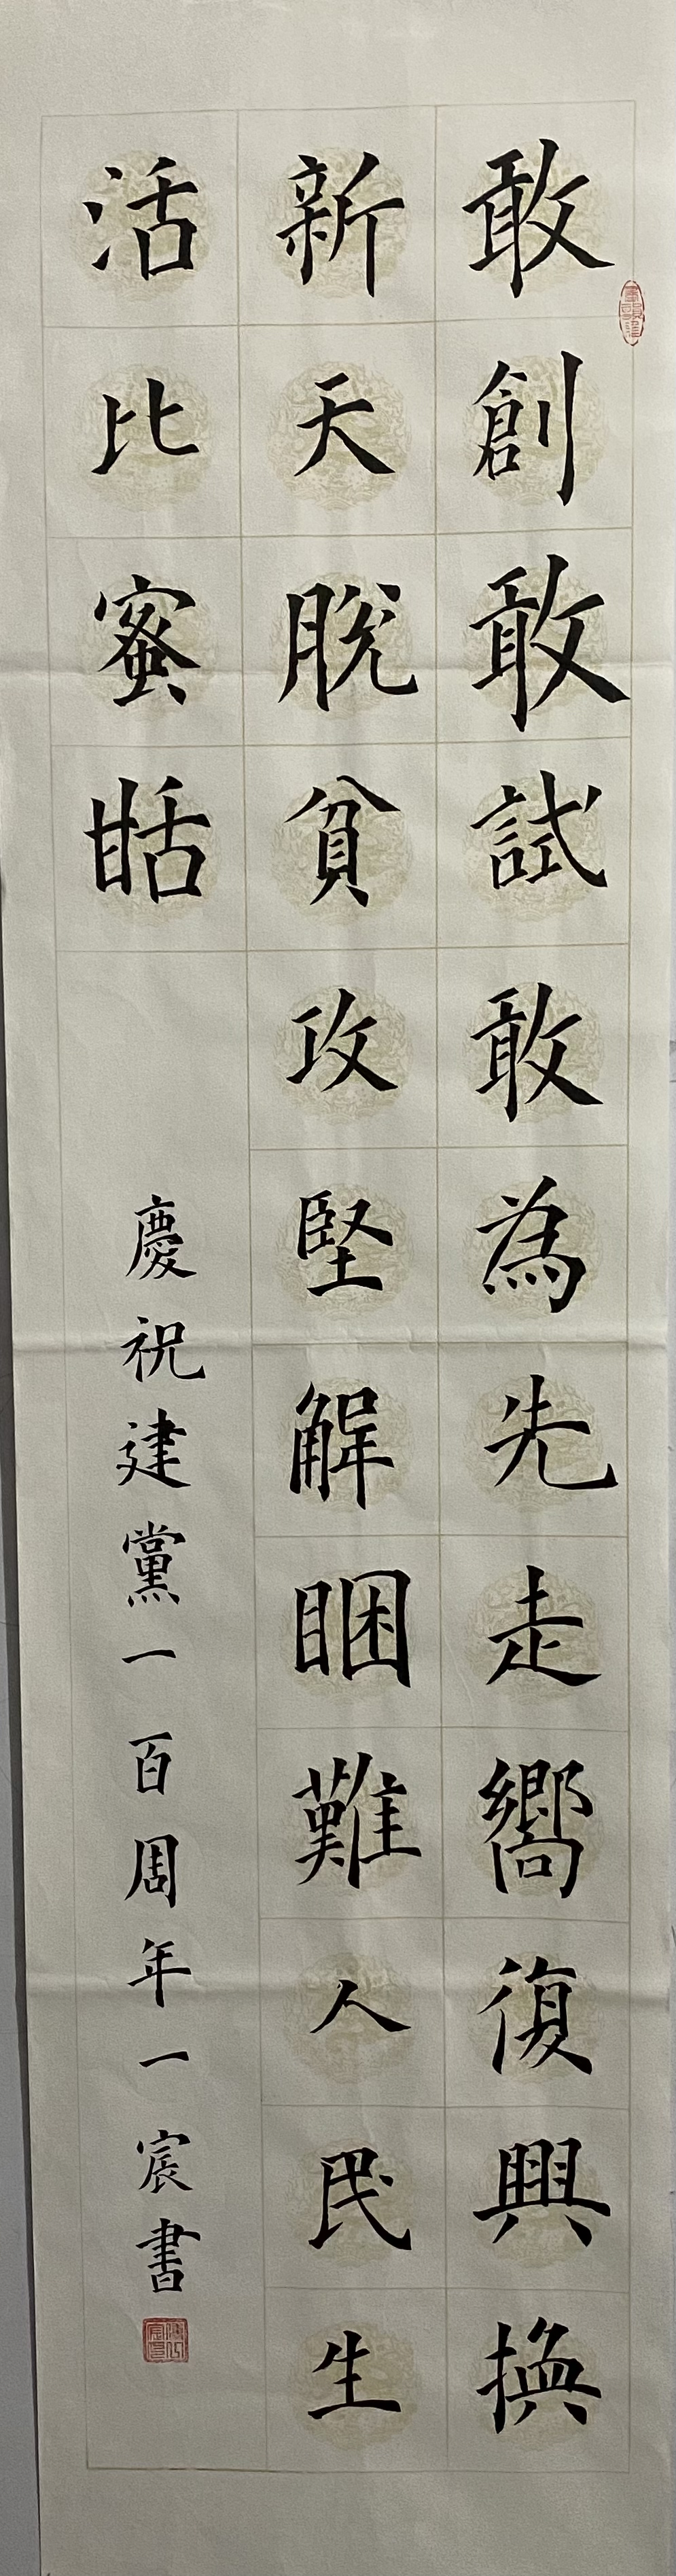 敢創敢試敢為先走嚮復興換
新天脫貧攻堅解睏難人民生
活比蜜甛
慶祝建黨一百周年一宸書